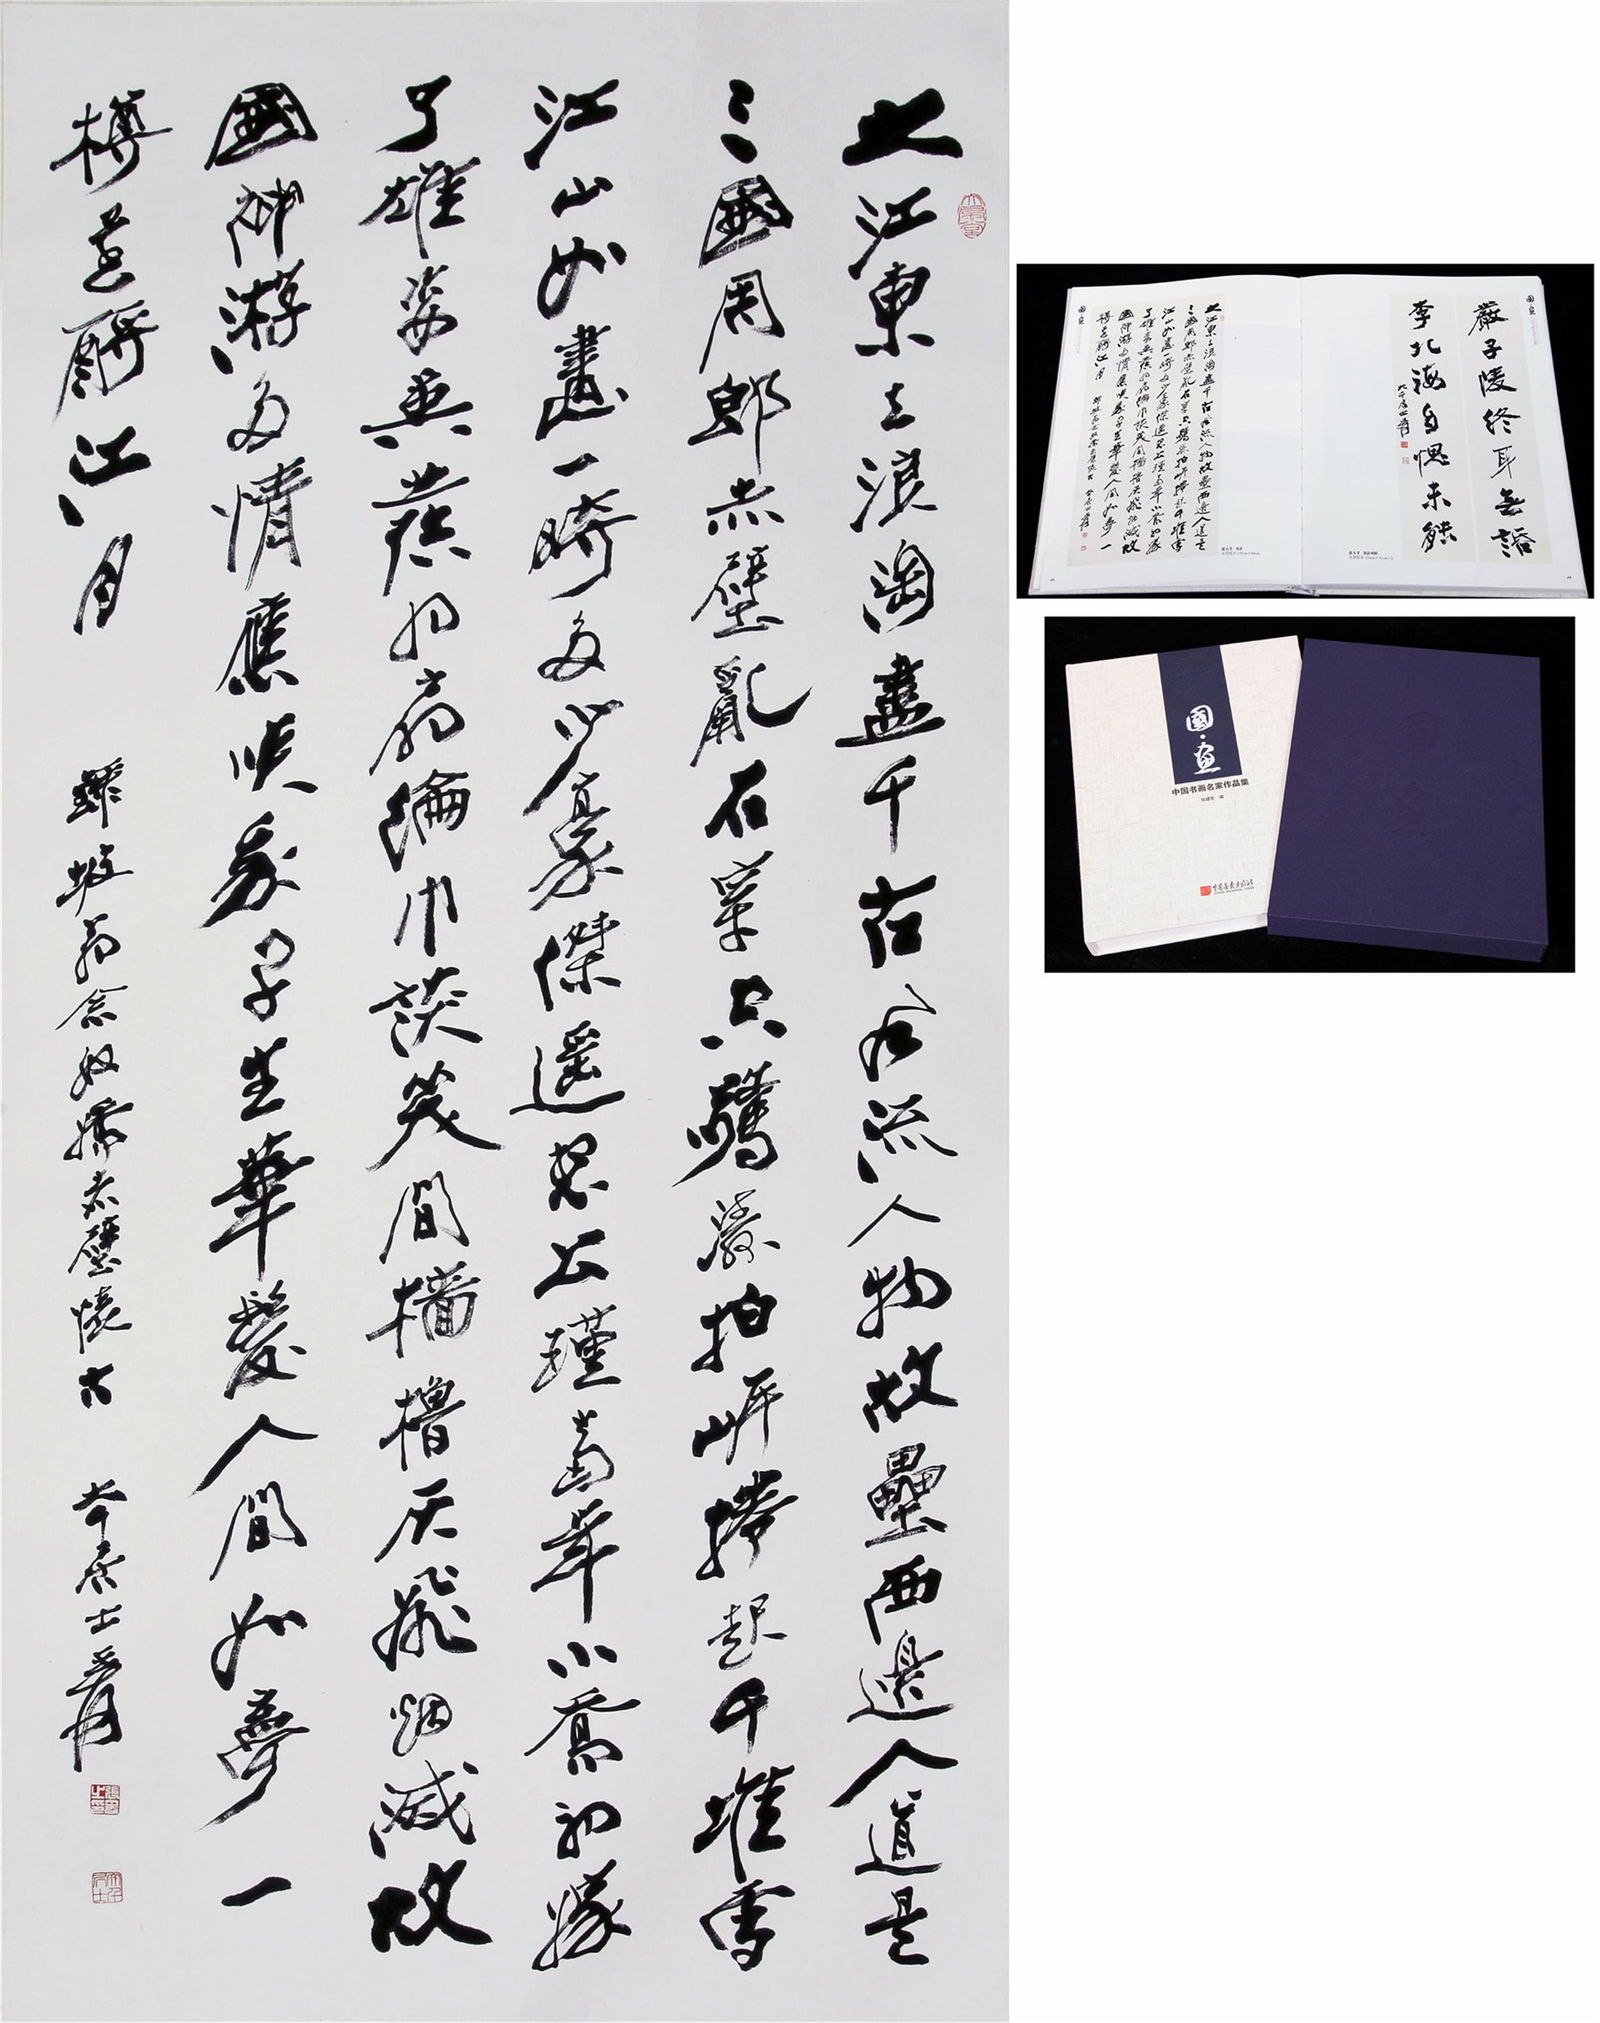 大江東去浪淘盡千古風流人物故壘西邊人道是
三國周郎赤壁亂石穿空驚濤拍岸捲起千堆雪
江山如畫一時多少豪傑遙想公瑾當年小喬初嫁
了雄姿英發羽扇綸巾談笑間檣櫓灰飛烟滅故
國神游多情應笑我早生華髮人間如夢一
樽還酹江月 坡翁念奴嬌赤壁懷古 大千居士爰
嚴子陵終
李北海自愧未能
大千居士爰
國·画
國·画
中国书画名家作品集
中国画报出版社